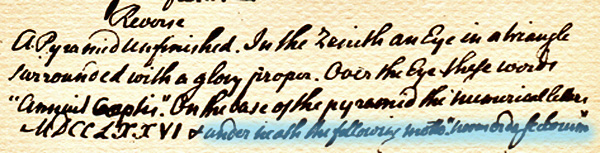 Reverse
A Pyramid unfinished. In the Zenith an Eye in a triangle
surrounded with a glory proper. Over the Eye these words
"Annuit Cœptis". On the base of the pyramid the numerical letters
MDCCLXXVI & underneath the following motto. "novus ordo seclorum"